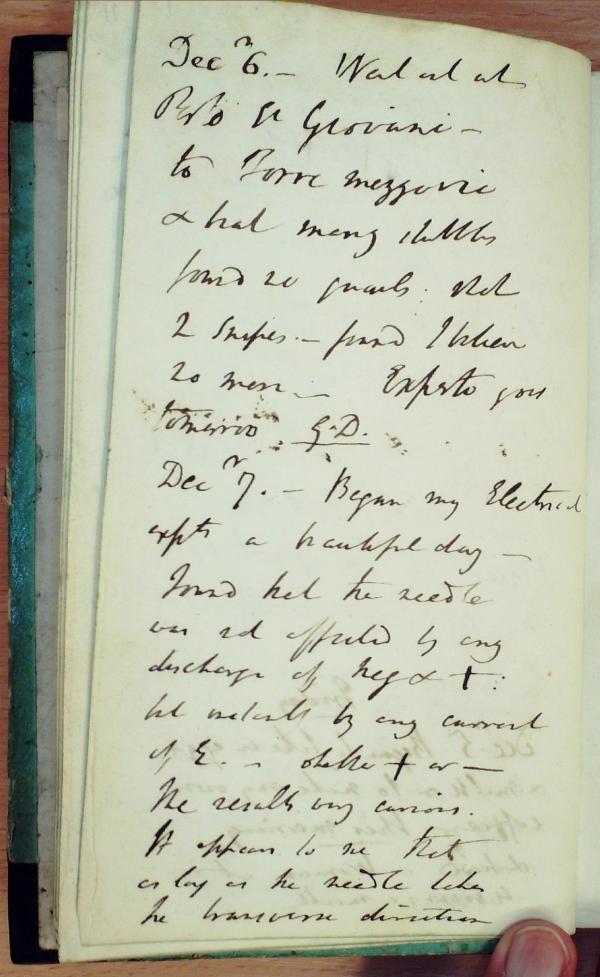 Decr 6. – Went out at
Porto St Giovani –
to Torre mezzavia
& beat many stubbles
found no quails. shot
2 Snipes. – found I believe
20 more –      Expecto good
tomorrow. G.D.
Decr 7. – Began my Electrical
expts a beautiful day –
Found that the needle
was not affected by any
discharge of Neg & +:
but instantly by any current
of E. – whether + or –
The results very curious.
It appears to me that
as long as the needle takes
the transverse direction